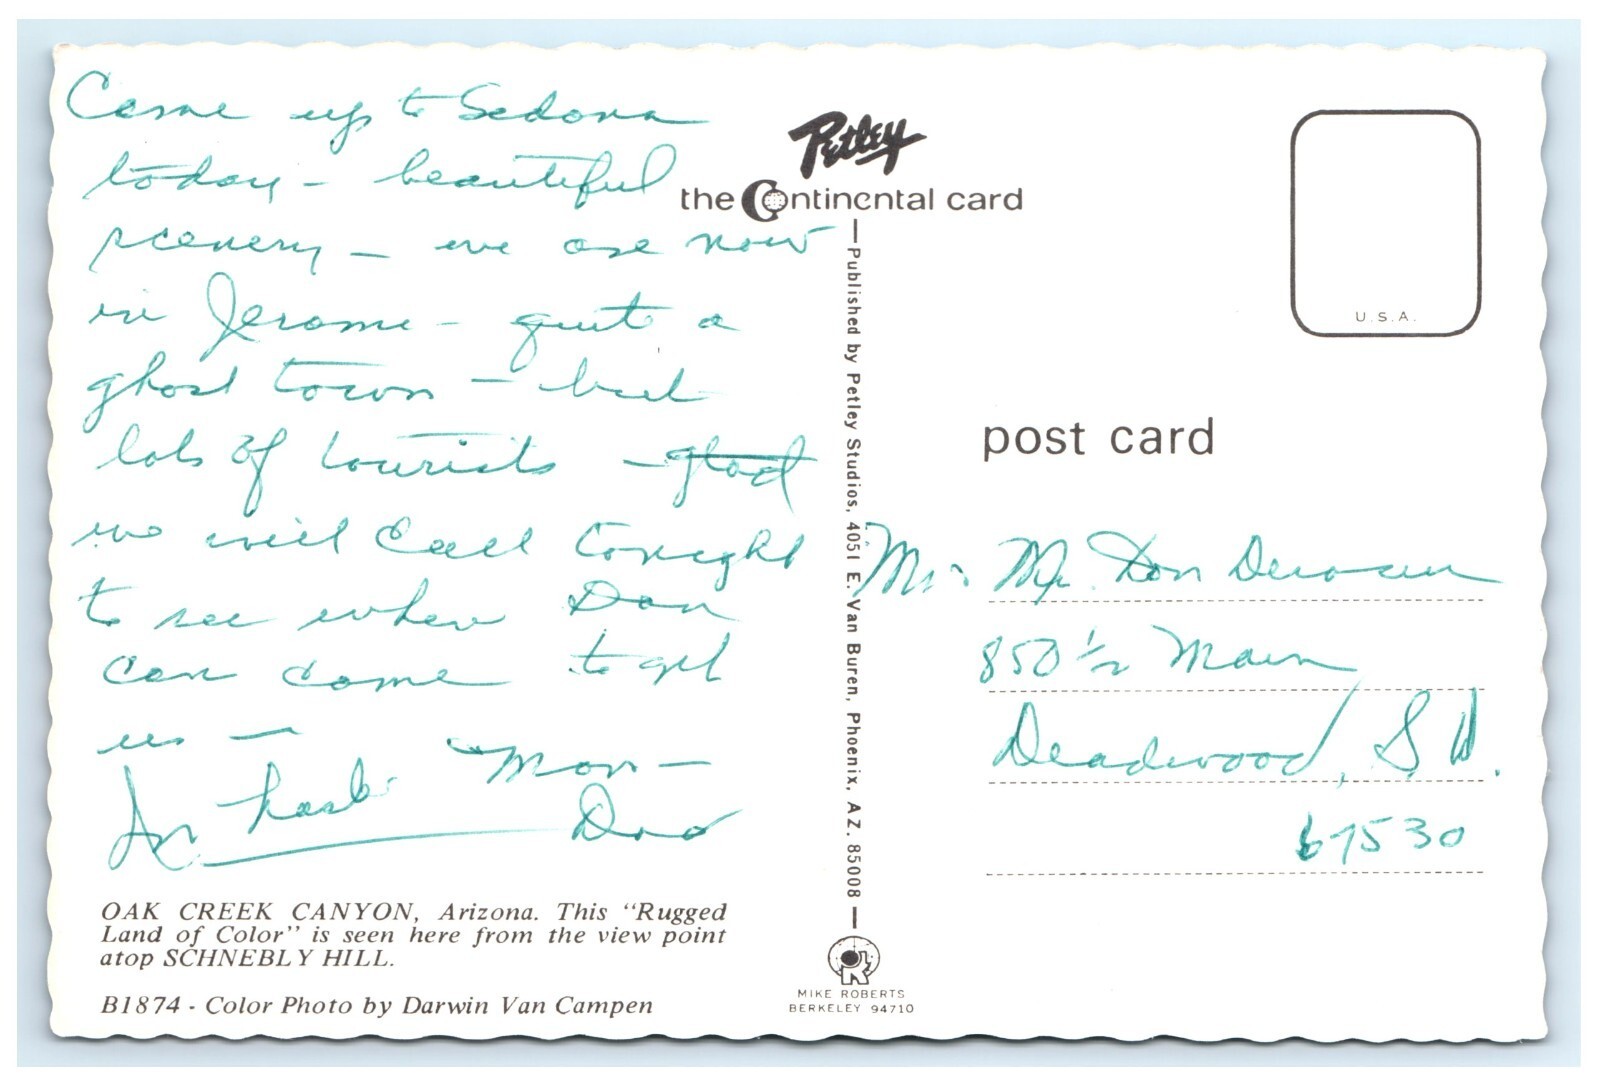 Came up to Sedona
today - beautiful
scenery - we are now
in Jerome - quit a
ghost town - but
lots of tourists -
we will call tonight
to see when Dan
can come to get
us -
Mon -
OAK CREEK CANYON, Arizona. This "Rugged
Land of Color" is seen here from the view point
atop SCHNEBLY HILL.
B1874 - Color Photo by Darwin Van Campen
Petley
the Continental card
Published by Petley Studios, 4051 E. Van Buren, Phoenix, AZ. 85008
MIKE ROBERTS
BERKELEY 94710
U.S.A.
post card
Don
850 1/2 Main
Deadwood, S D.
67530